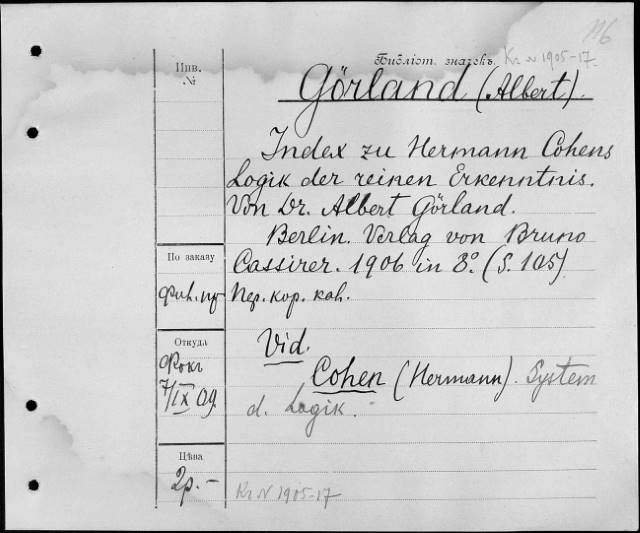 116
Библіот. значекъ Kr N 1905-17.
Инв.
№
Görland (Albert).
Index zu Hermann Cohens
Logik der reinen Erkenntnis.
Von Dr. Albert Görland.
Berlin. Verlag von Bruno
По заказу
Cassirer. 1906 in 8º. (S. 105)
Пер. кор. кан.
Откуда
Vid.
Фокъ
Cohen (Hermann). System
7/IX 09.
d. Logik.
Цѣна
2 р. -
Kr N 1905-17